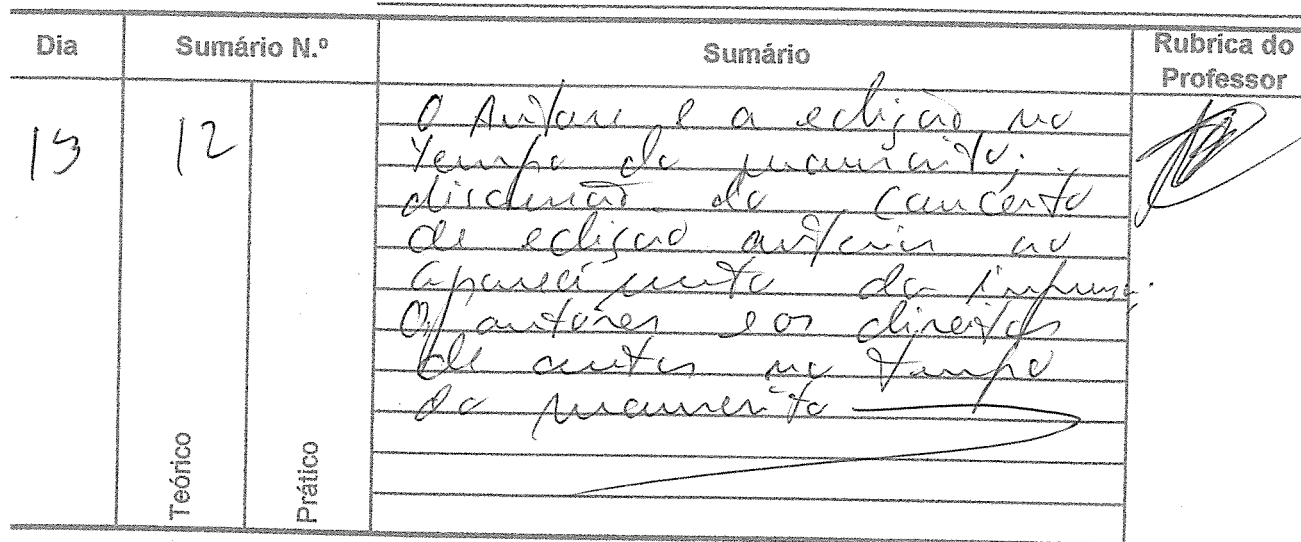 Dia Sumário N.º Sumário Rubrica do Professor
13 12
O Autor e a edição no
tempo do manuscrito:
discussão do conceito
de edição anterior ao
aparecimento da imprensa.
Os autores e os direitos
de autor no tempo
do manuscrito
Teórico
Prático